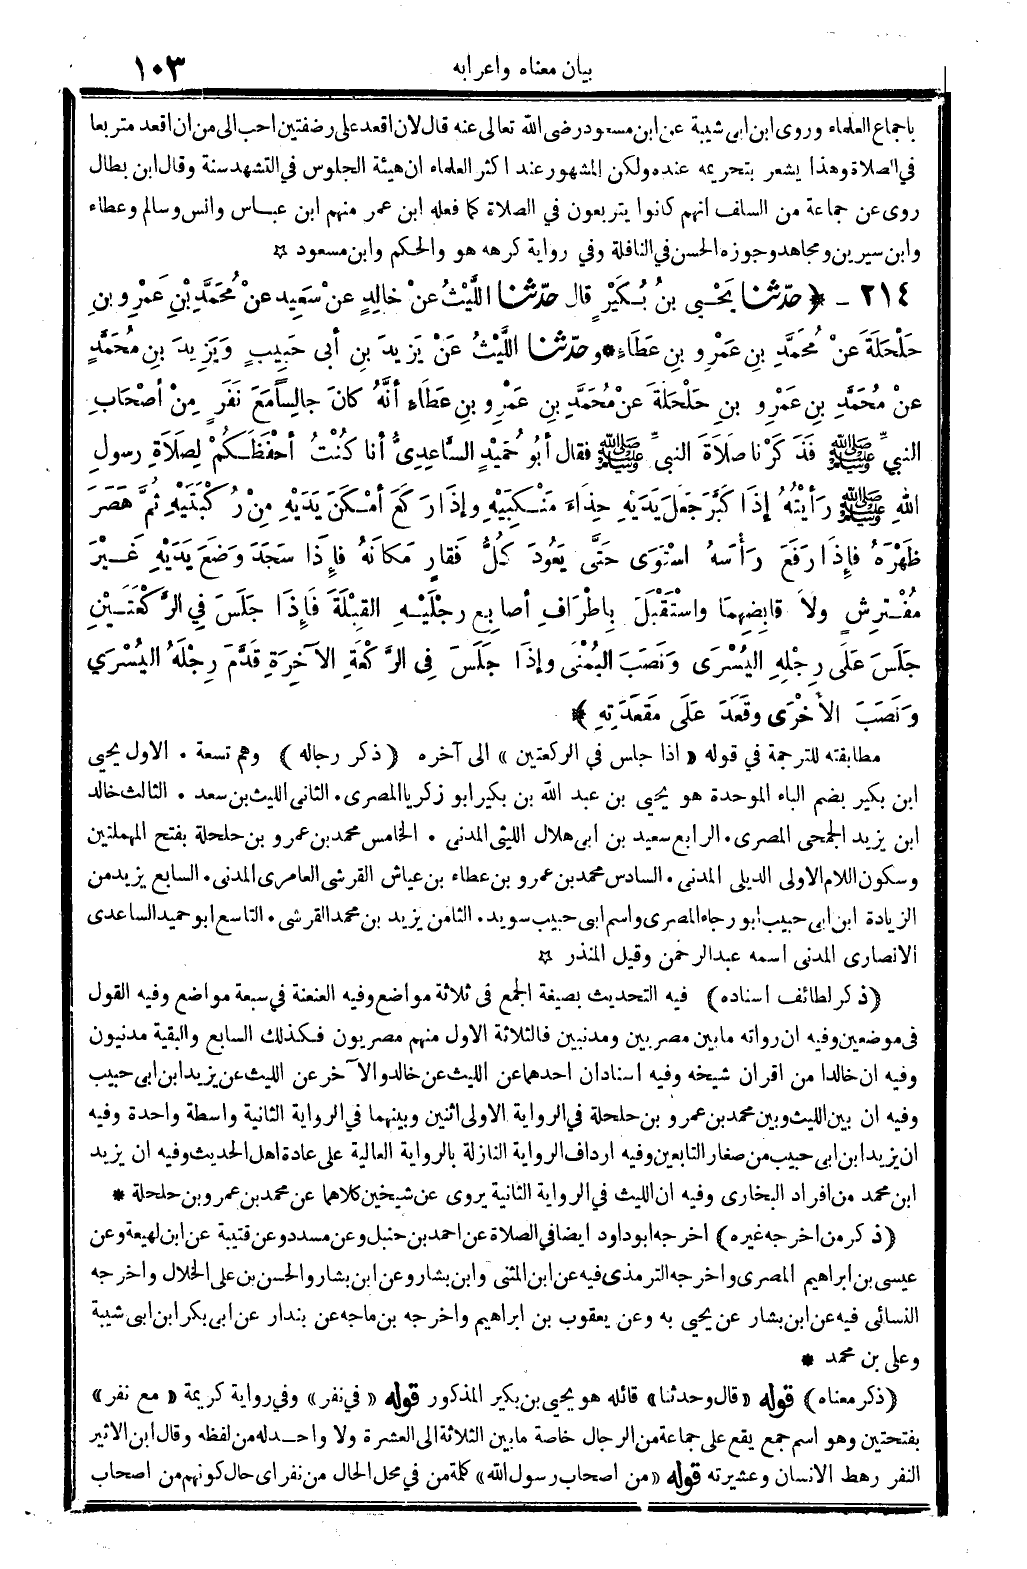 بيان معناه واعرابه ١٠٣
باجماع العلماء وروى ابن ابى شيبة عن ابن مسعود رضى الله تعالى عنه قال لان اقعد على رضفتين احب الى من ان اقعد متربعا
فى الصلاة وهذا يشعر بتحريمه عنده ولكن المشهور عند اكثر العلماء ان هيئة الجلوس فى التشهد سنة وقال ابن بطال
روى عن جماعة من السلف انهم كانوا يتربعون في الصلاة كما فعله ابن عمر منهم ابن عباس وانس وسالم وعطاء
وابن سيرين ومجاهد وجوزه الحسن فى النافلة وفي رواية كرهه هو والحكم وابن مسعود ☆
٢١٤ - ﴿ حدّثنا يَحْيى بنُ بُكَيْرٍ قال حدّثنا اللَّيْثُ عنْ خالِدٍ عنْ سَعِيد عنْ مُحَمَّدِ بْنِ عَمْرِو بنِ
حَلْحَلَةَ عنْ مُحمَّدِ بنِ عَمْرِو بنِ عَطَاءٍ * وحدّثنا اللَّيْثُ عَنْ يَزِيدَ بنِ أبى حَبِيبٍ وَيَزِيدَ بنِ مُحَمَّدٍ
عنْ مُحَمَّدِ بنِ عَمْرِو بنِ حَلْحَلَةَ عنْ مُحَمَّدِ بنِ عَمْرِو بنِ عَطَاءٍ أنَّهُ كانَ جالِساً مَعَ نَفَرٍ مِنْ أصْحَابِ
النبيِّ ﷺ فَذَكَرْنا صَلَاةَ النبيِّ ﷺ فقال أبُو حُمَيْدٍ السَّاعِدِىُّ أنا كُنْتُ أحْفَظَكُمْ لِصَلَاةِ رسولِ
اللهِ ﷺ رَأيْتُهُ إذَا كَبَّرَ جَعَلَ يَدَيْهِ حِذَاءَ مَنْكِبَيْهِ وإذَا رَكَعَ أمْكَنَ يَدَيْهِ مِنْ رُكْبَتَيْهِ ثُمَّ هَصَرَ
ظَهْرَهُ فإِذَا رَفَعَ رَأْسَهُ اسْتَوَى حَتَّى يَعُودَ كُلُّ فَقارٍ مَكانَهُ فإِذَا سَجَدَ وَضَعَ يَدَيْهِ غَيْرَ
مُفْتَرِشٍ ولاَ قابِضِهِمَا واسْتَقْبَلَ بِاطْرَافِ أصابِعِ رِجْلَيْهِ القِبْلَةَ فَإِذَا جَلَسَ فِي الرَّكْعَتَيْنِ
جَلَسَ عَلَى رِجْلِهِ اليُسْرَى وَنَصَبَ اليُمْنَى وإذَا جَلَسَ فِى الرَّكْعَةِ الآخِرَةِ قَدَّمَ رِجْلَهُ اليُسْرَي
وَنَصَبَ الأخْرَى وقَعَدَ عَلَى مَقْعَدَتِهِ ﴾
مطابقته للترجمة في قوله « اذا جلس في الركعتين » الى آخره (ذكر رجاله) وهم تسعة . الاول يحيي
ابن بكير بضم الباء الموحدة هو يحيى بن عبد الله بن بكير ابو زكريا المصرى . الثانى الليث بن سعد . الثالث خالد
ابن يزيد الجمحى المصرى . الرابع سعيد بن ابى هلال الليثى المدنى . الخامس محمد بن عمرو بن حلحلة بفتح المهملتين
وسكون اللام الاولى الديلى المدنى . السادس محمد بن عمرو بن عطاء بن عياش القرشى العامرى المدنى . السابع يزيد من
الزيادة ابن ابى حبيب ابو رجاء المصرى واسم ابى حبيب سويد . الثامن يزيد بن محمد القرشى . التاسع ابو حميد الساعدى
الانصارى المدنى اسمه عبد الرحمن وقيل المنذر ☆
(ذكر لطائف اسناده) فيه التحديث بصيغة الجمع فى ثلاثة مواضع وفيه العنعنة في سبعة مواضع وفيه القول
فى موضعين وفيه ان رواته ما بين مصريين ومدنيين فالثلاثة الاول منهم مصريون فكذلك السابع والبقية مدنيون
وفيه ان خالدا من اقران شيخه وفيه اسنادان احدهما عن الليث عن خالد والآخر عن الليث عن يزيد ابن ابى حبيب
وفيه ان بين الليث وبين محمد بن عمرو بن حلحلة في الرواية الاولى اثنين وبينهما في الرواية الثانية واسطة واحدة وفيه
ان يزيد ابن ابى حبيب من صغار التابعين وفيه ارداف الرواية النازلة بالرواية العالية على عادة اهل الحديث وفيه ان يزيد
ابن محمد من افراد البخارى وفيه ان الليث في الرواية الثانية يروى عن شيخين كلاهما عن محمد بن عمرو بن حلحلة *
(ذكر من اخرجه غيره) اخرجه ابو داود ايضا في الصلاة عن احمد بن حنبل وعن مسدد وعن قتيبة عن ابن لهيعة وعن
عيسى بن ابراهيم المصرى واخرجه الترمذى فيه عن ابن المثنى وابن بشار وعن ابن بشار والحسن بن على الخلال واخرجه
النسائى فيه عن ابن بشار عن يحيى به وعن يعقوب بن ابراهيم واخرجه بن ماجه عن بندار عن ابى بكر ابن ابى شيبة
وعلى بن محمد *
(ذكر معناه) قوله « قال وحدثنا » قائله هو يحيى بن بكير المذكور قوله « في نفر » وفي رواية كريمة « مع نفر »
بفتحتين وهو اسم جمع يقع على جماعة من الرجال خاصة ما بين الثلاثة الى العشرة ولا واحد له من لفظه وقال ابن الاثير
النفر رهط الانسان وعشيرته قوله « من اصحاب رسول الله » كلمة من في محل الحال من نفر اى حال كونهم من اصحاب